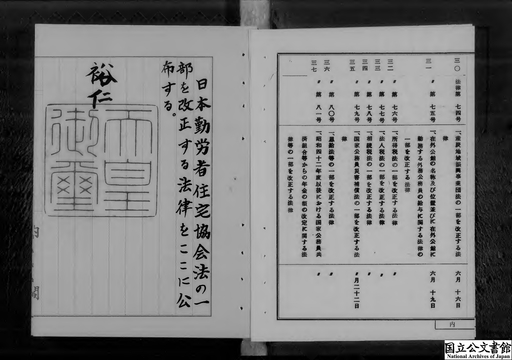 三〇 法律第 七四号
三一 〃 七五号 一、在外公館の名称及び位置並びに在外公館に
勤務する外務公務員の給与に関する法律の
一部を改正する法律 六月 十九日
三二 〃 七六号 一、所得税法の一部を改正する法律 〃
三三 〃 七七号 一、法人税法の一部を改正する法律 〃
三四 〃 七八号 一、相続税法の一部を改正する法律 〃
三五 〃 七九号 一、国家公務員災害補償法の一部を改正する法
律 〃 月二十二日
三六 〃 八〇号 一、恩給法等の一部を改正する法律 〃
三七 〃 八一号 一、昭和四十二年度以後における国家公務員共
済組合等からの年金の額の改定に関する法
律等の一部を改正する法律 〃
内
日本勤労者住宅協会法の一
部を改正する法律をここに公
布する。
裕仁
天皇
御璽
内 閣
国立公文書館
National Archives of Japan